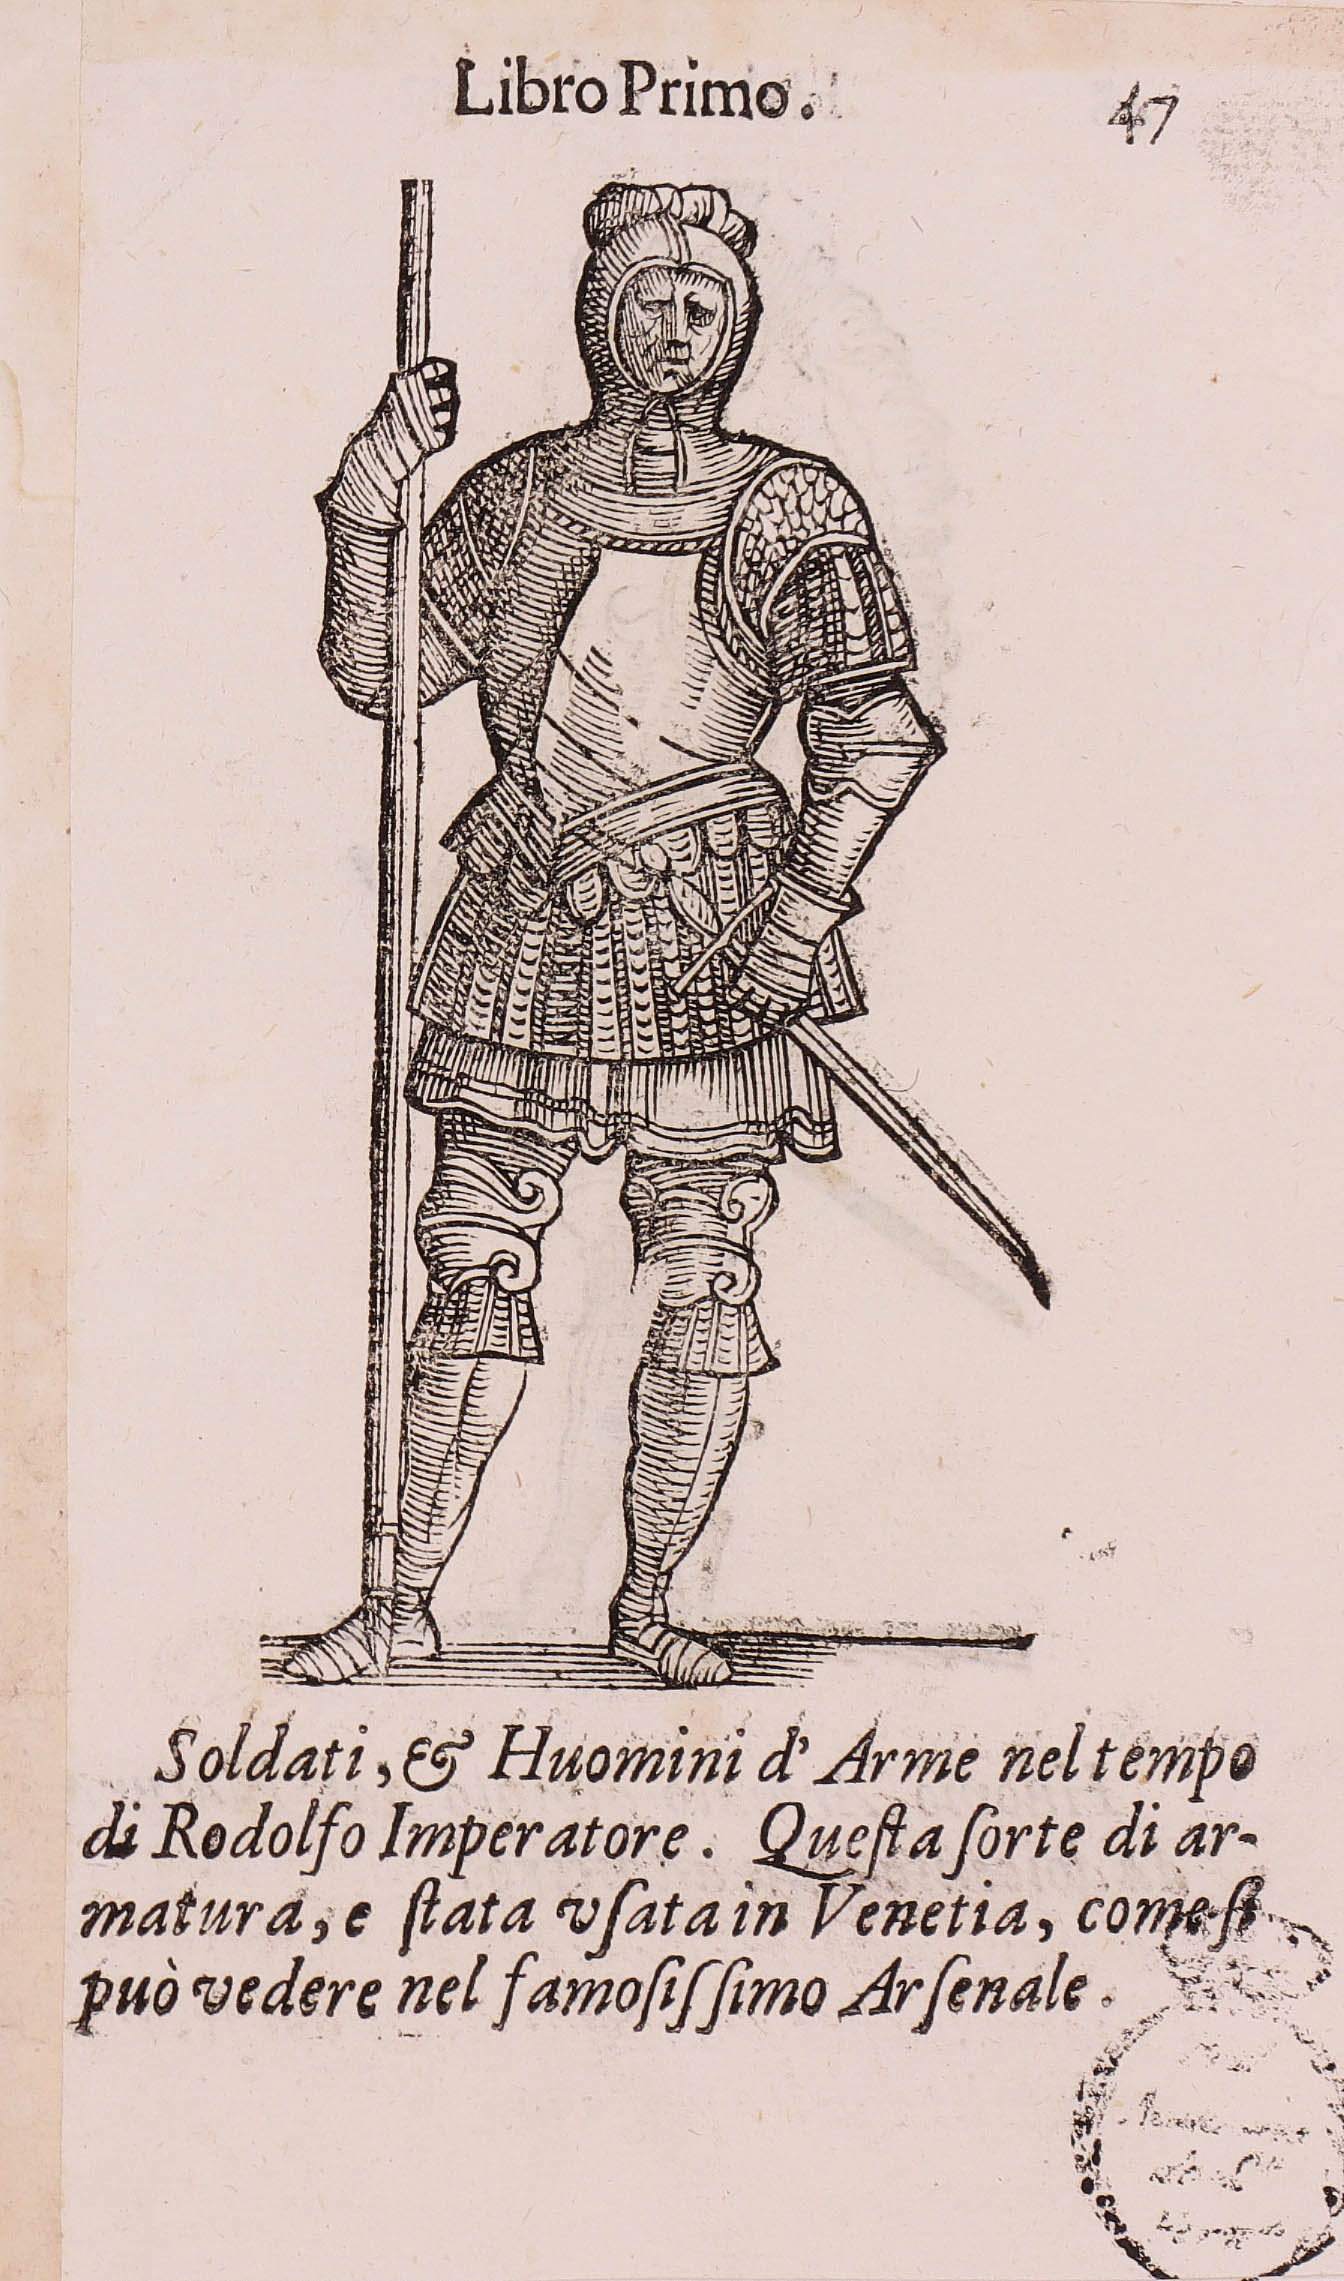 Libro Primo.
47
Soldati, & Huomini d' Arme nel tempo
di Rodolfo Imperatore. Queſta ſorte di ar-
matura, e ſtata vſata in Venetia, come ſi
può vedere nel famoſiſſimo Arſenale.